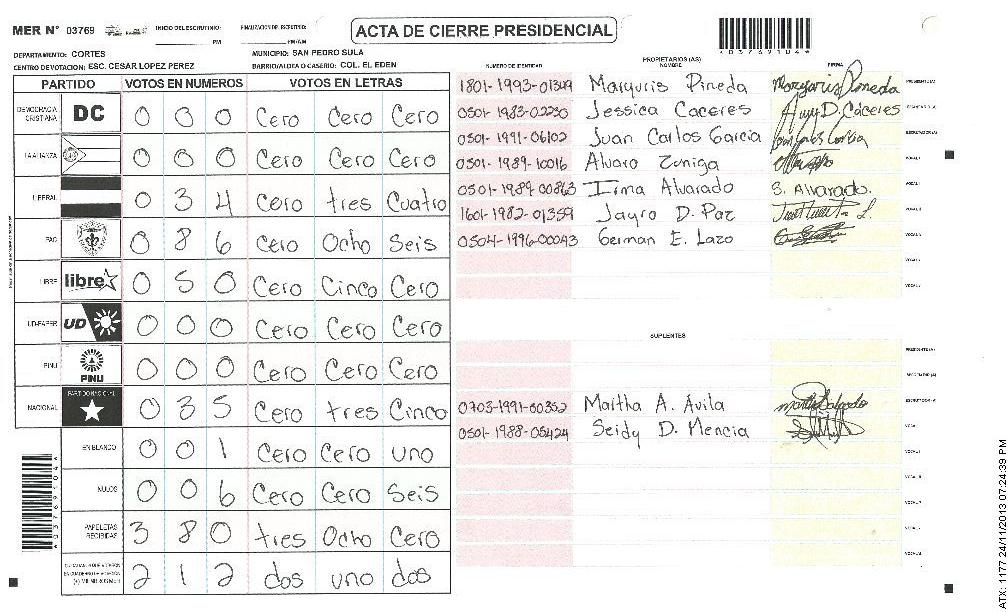 MER N° 03769 INICIO DEL ESCRUTINIO: FINALIZACION DEL ESCRUTINIO: ACTA DE CIERRE PRESIDENCIAL *03769104*
PM PM/AM
DEPARTAMENTO: CORTES MUNICIPIO: SAN PEDRO SULA
CENTRO DE VOTACION: ESC. CESAR LOPEZ PEREZ BARRIO/ALDEA O CASERIO: COL. EL EDEN
PARTIDO VOTOS EN NUMEROS VOTOS EN LETRAS
DEMOCRACIA CRISTIANA DC 0 0 0 Cero Cero Cero
LA ALIANZA 0 0 0 Cero Cero Cero
LIBERAL 0 3 4 Cero tres Cuatro
PAC 0 8 6 Cero Ocho Seis
LIBRE libre 0 5 0 Cero Cinco Cero
UD-FAPER UD 0 0 0 Cero Cero Cero
PINU PINU 0 0 0 Cero Cero Cero
NACIONAL PARTIDO NACIONAL 0 3 5 Cero tres Cinco
EN BLANCO 0 0 1 Cero Cero uno
NULOS 0 0 6 Cero Cero Seis
PAPELETAS RECIBIDAS 3 8 0 tres Ocho Cero
2 1 2 dos uno dos
*03769104*
PROPIETARIOS (AS)
NUMERO DE IDENTIDAD NOMBRE FIRMA
1801-1993-01349 Marquris Pineda PRESIDENTE (A)
0501-1983-02230 Jessica Caceres D. Caceres SECRETARIO (A)
0501-1991-06102 Juan Carlos Garcia ESCRUTADOR (A)
0501-1989-10016 Alvaro Zuniga VOCAL I
0501-1989-00863 Irma Alvarado S. Alvarado. VOCAL II
1601-1982-01359 Jayro D. Paz
0504-1996-00043 German E. Lazo
SUPLENTES
PRESIDENTE (A)
SECRETARIO (A)
0703-1991-00352 Martha A. Avila ESCRUTADOR (A)
0501-1988-05424 Seidy D. Mencia
ATX: 1177 24/11/2013 07:24:39 PM